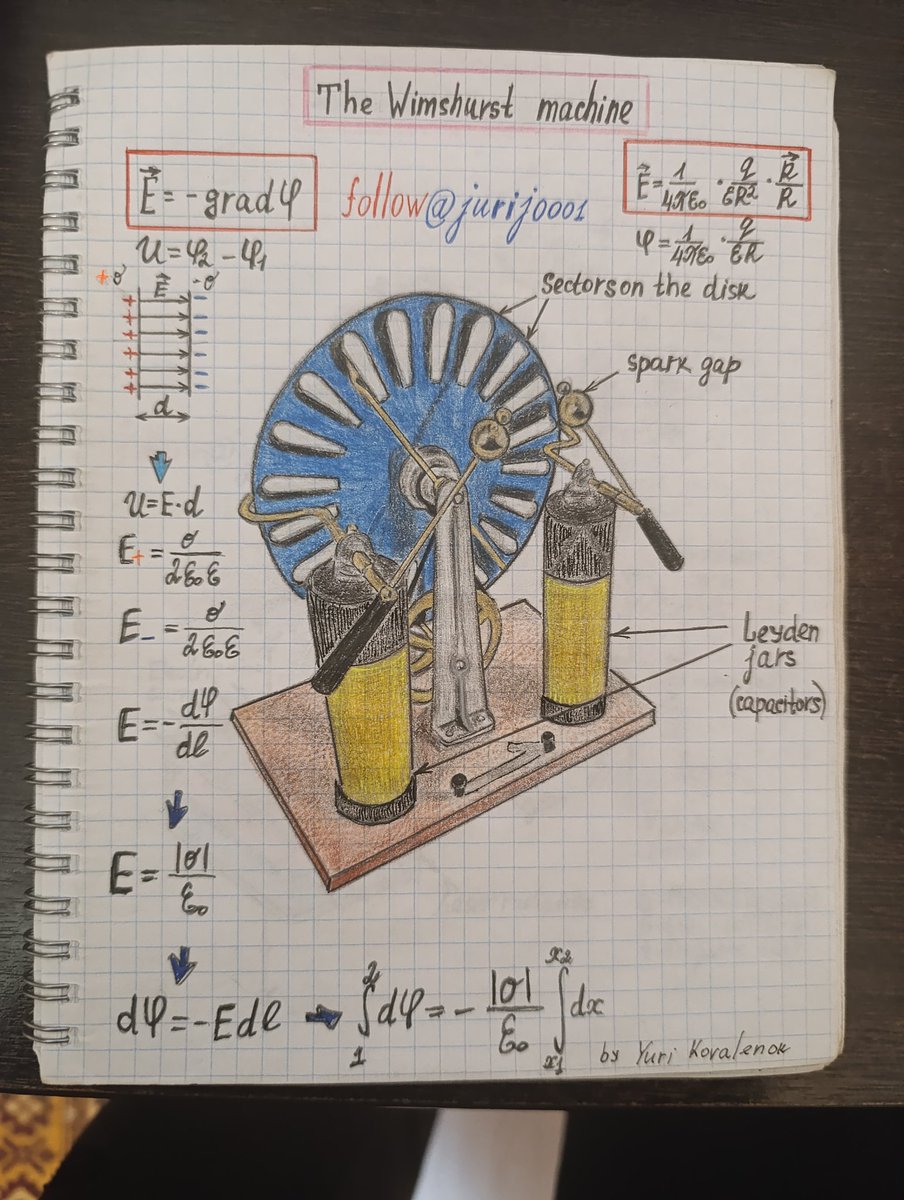 The Wimshurst machine
E⃗ = -gradφ
follow@jurij0001
E⃗ = 1/4πε₀ · q/εR² · R⃗/R
U = φ₂ - φ₁
φ = 1/4πε₀ · q/εR
+σ E⃗ -σ
+ -
+ -
+ -
+ -
+ -
+ -
d
Sectors on the disk
spark gap
U = E·d
E₊ = σ/2ε₀ε
E₋ = σ/2ε₀ε
Leyden
jars
(capacitors)
E = -dφ/dl
E = |σ|/ε₀
dφ = -Edl → ∫₁² dφ = - |σ|/ε₀ ∫ₓ₁ˣ² dx
by Yuri Kovalenok